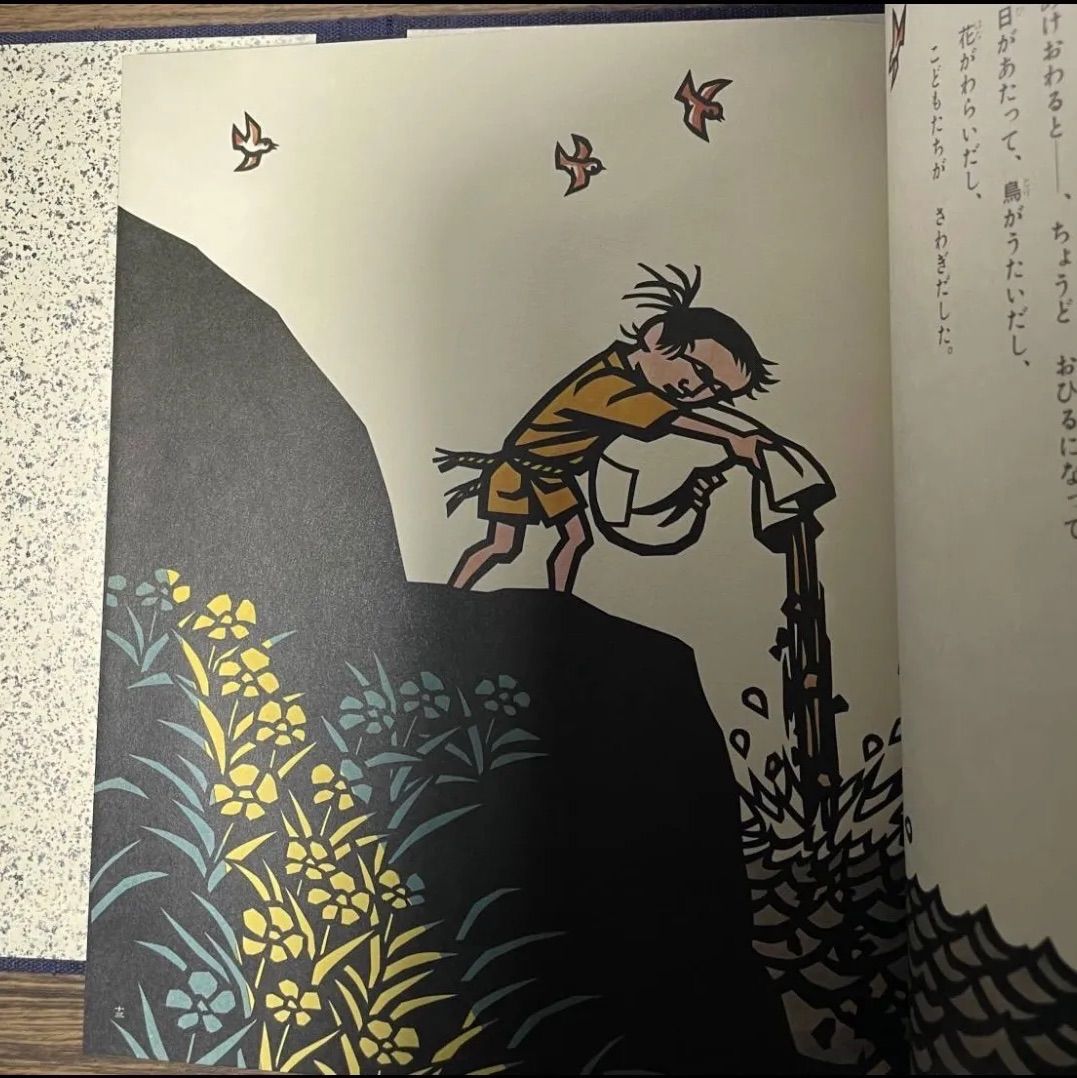 けおわると――、ちょうど おひるになって
日があたって、鳥がうたいだし、
花がわらいだし、
こどもたちが さわぎだした。
十三